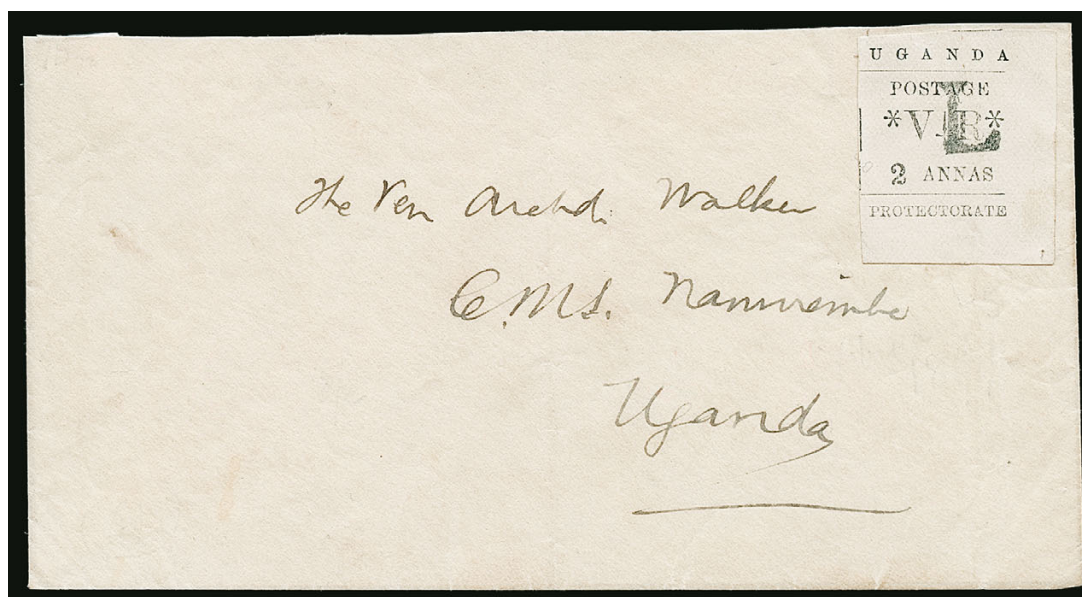 UGANDA
POSTAGE
*V R*
L
2 ANNAS
PROTECTORATE
The Ven Archd. Walker
C.M.S. Namirembe
Uganda